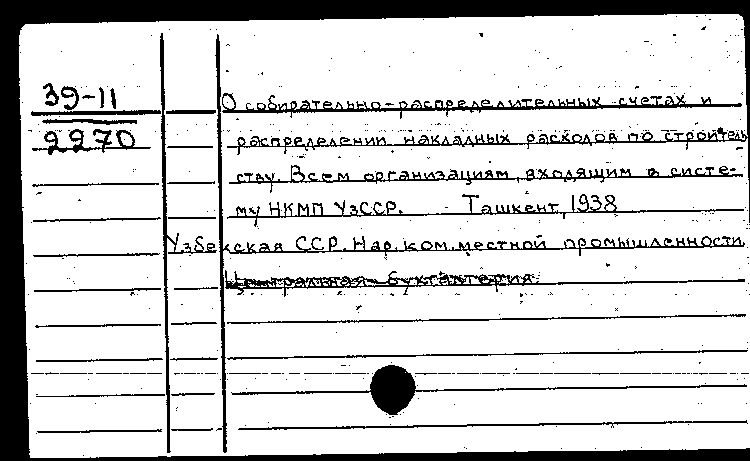 39-11
2270
О собирательно-распределительных счетах и
распределении накладных расходов по строитель
ству. Всем организациям, входящим в систе-
му НКМП УзССР. Ташкент, 1938
Узбекская ССР. Нар. ком. местной промышленности
Центральная бухгалтерия.